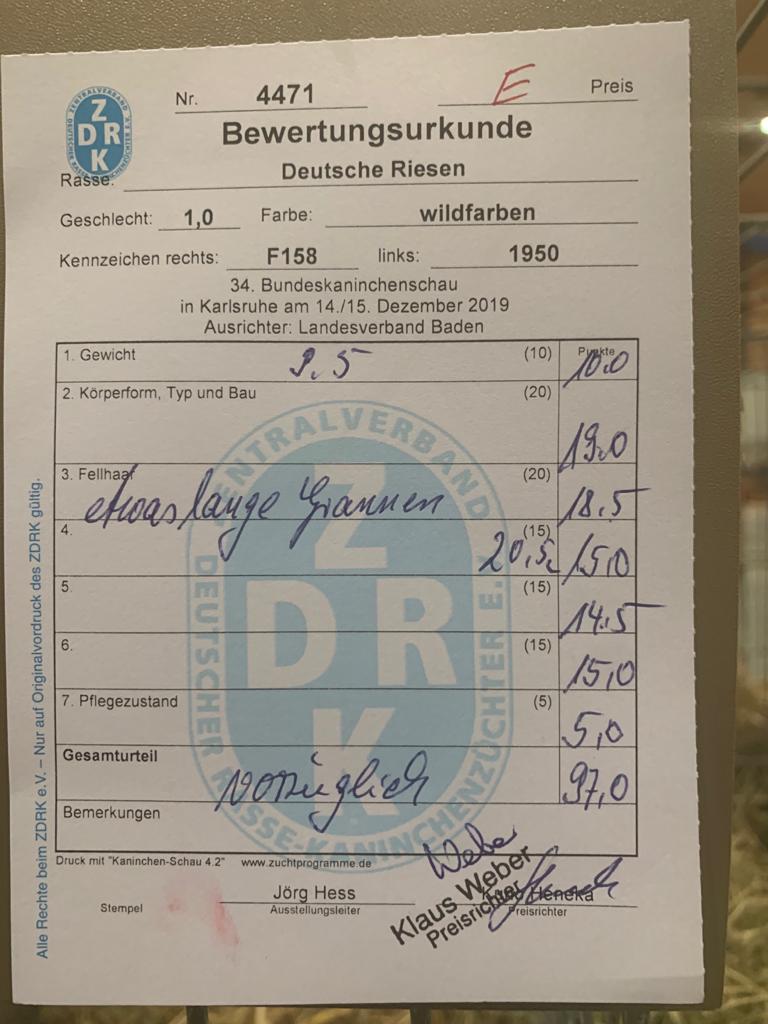 Nr. 4471 E Preis
ZENTRALVERBAND DEUTSCHER RASSE-KANINCHENZÜCHTER E.V.
Z
DRK
K
Bewertungsurkunde
Rasse: Deutsche Riesen
Geschlecht: 1,0 Farbe: wildfarben
Kennzeichen rechts: F158 links: 1950
34. Bundeskaninchenschau
in Karlsruhe am 14./15. Dezember 2019
Ausrichter: Landesverband Baden
1. Gewicht 9.5 (10) Punkte 10.0
2. Körperform, Typ und Bau (20) 19.0
3. Fellhaar (20) 18.5
etwas lange Grannen
4. (15) 20,5 15,0
5. (15) 14.5
6. (15) 15,0
7. Pflegezustand (5) 5,0
Gesamturteil vorzüglich 97,0
Bemerkungen
ZENTRALVERBAND DEUTSCHER RASSE-KANINCHENZÜCHTER E.V.
Z
DR
K
Alle Rechte beim ZDRK e.V. – Nur auf Originalvordruck des ZDRK gültig.
Druck mit "Kaninchen-Schau 4.2" www.zuchtprogramme.de
Weber
Klaus Weber
Preisrichter
Stempel
Jörg Hess
Ausstellungsleiter
Heneka
Preisrichter